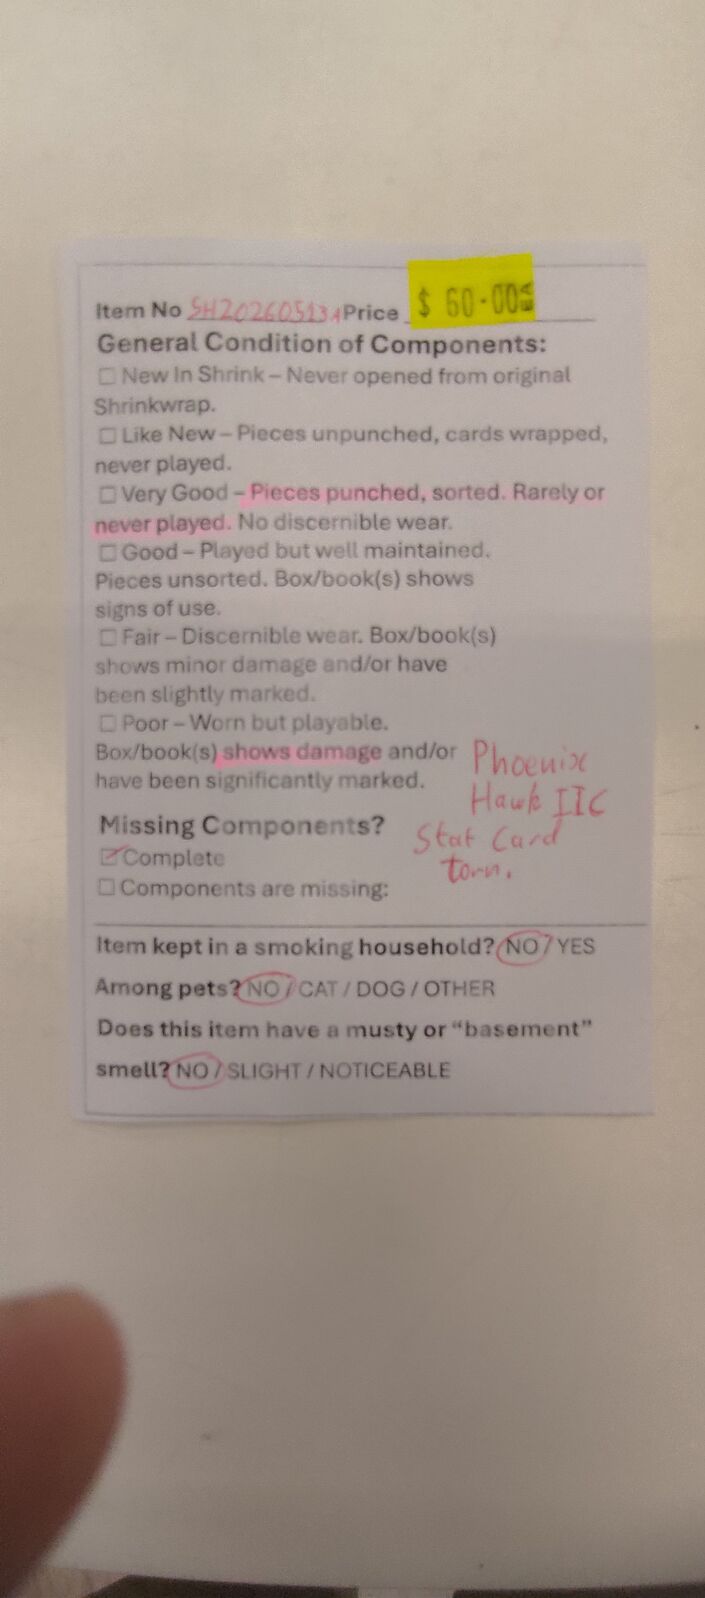 Item No SH20260513A Price $ 60.00
General Condition of Components:
☐ New In Shrink – Never opened from original
Shrinkwrap.
☐ Like New – Pieces unpunched, cards wrapped,
never played.
☐ Very Good – Pieces punched, sorted. Rarely or
never played. No discernible wear.
☐ Good – Played but well maintained.
Pieces unsorted. Box/book(s) shows
signs of use.
☐ Fair – Discernible wear. Box/book(s)
shows minor damage and/or have
been slightly marked.
☐ Poor – Worn but playable.
Box/book(s) shows damage and/or
have been significantly marked.
Phoenix
Hawk IIC
Stat Card
torn.
Missing Components?
☑ Complete
☐ Components are missing:
Item kept in a smoking household? NO / YES
Among pets? NO / CAT / DOG / OTHER
Does this item have a musty or “basement”
smell? NO / SLIGHT / NOTICEABLE